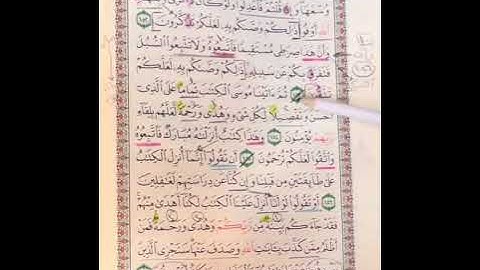 وُسْعَهَا وَإِذَا قُلْتُمْ فَٱعْدِلُوا۟ وَلَوْ كَانَ
ٱللَّهِ أَوْفُوا۟ ذَٰلِكُمْ وَصَّىٰكُم بِهِۦ لَعَلَّكُمْ تَذَكَّرُونَ ١٥٢
وَأَنَّ هَٰذَا صِرَٰطِى مُسْتَقِيمًا فَٱتَّبِعُوهُ وَلَا تَتَّبِعُوا۟ ٱلسُّبُلَ
فَتَفَرَّقَ بِكُمْ عَن سَبِيلِهِۦ ذَٰلِكُمْ وَصَّىٰكُم بِهِۦ لَعَلَّكُمْ
تَتَّقُونَ ثُمَّ ءَاتَيْنَا مُوسَى ٱلْكِتَٰبَ تَمَامًا عَلَى ٱلَّذِىٓ
أَحْسَنَ وَتَفْصِيلًا لِّكُلِّ شَىْءٍ وَهُدًى وَرَحْمَةً لَّعَلَّهُم بِلِقَآءِ
رَبِّهِمْ يُؤْمِنُونَ ١٥٤ وَهَٰذَا كِتَٰبٌ أَنزَلْنَٰهُ مُبَارَكٌ فَٱتَّبِعُوهُ
وَٱتَّقُوا۟ لَعَلَّكُمْ تُرْحَمُونَ ١٥٥ أَن تَقُولُوٓا۟ إِنَّمَآ أُنزِلَ ٱلْكِتَٰبُ
عَلَىٰ طَآئِفَتَيْنِ مِن قَبْلِنَا وَإِن كُنَّا عَن دِرَاسَتِهِمْ لَغَٰفِلِينَ
١٥٦ أَوْ تَقُولُوا۟ لَوْ أَنَّآ أُنزِلَ عَلَيْنَا ٱلْكِتَٰبُ لَكُنَّآ أَهْدَىٰ مِنْهُمْ
فَقَدْ جَآءَكُم بَيِّنَةٌ مِّن رَّبِّكُمْ وَهُدًى وَرَحْمَةٌ فَمَنْ
أَظْلَمُ مِمَّن كَذَّبَ بِـَٔايَٰتِ ٱللَّهِ وَصَدَفَ عَنْهَا سَنَجْزِى ٱلَّذِينَ